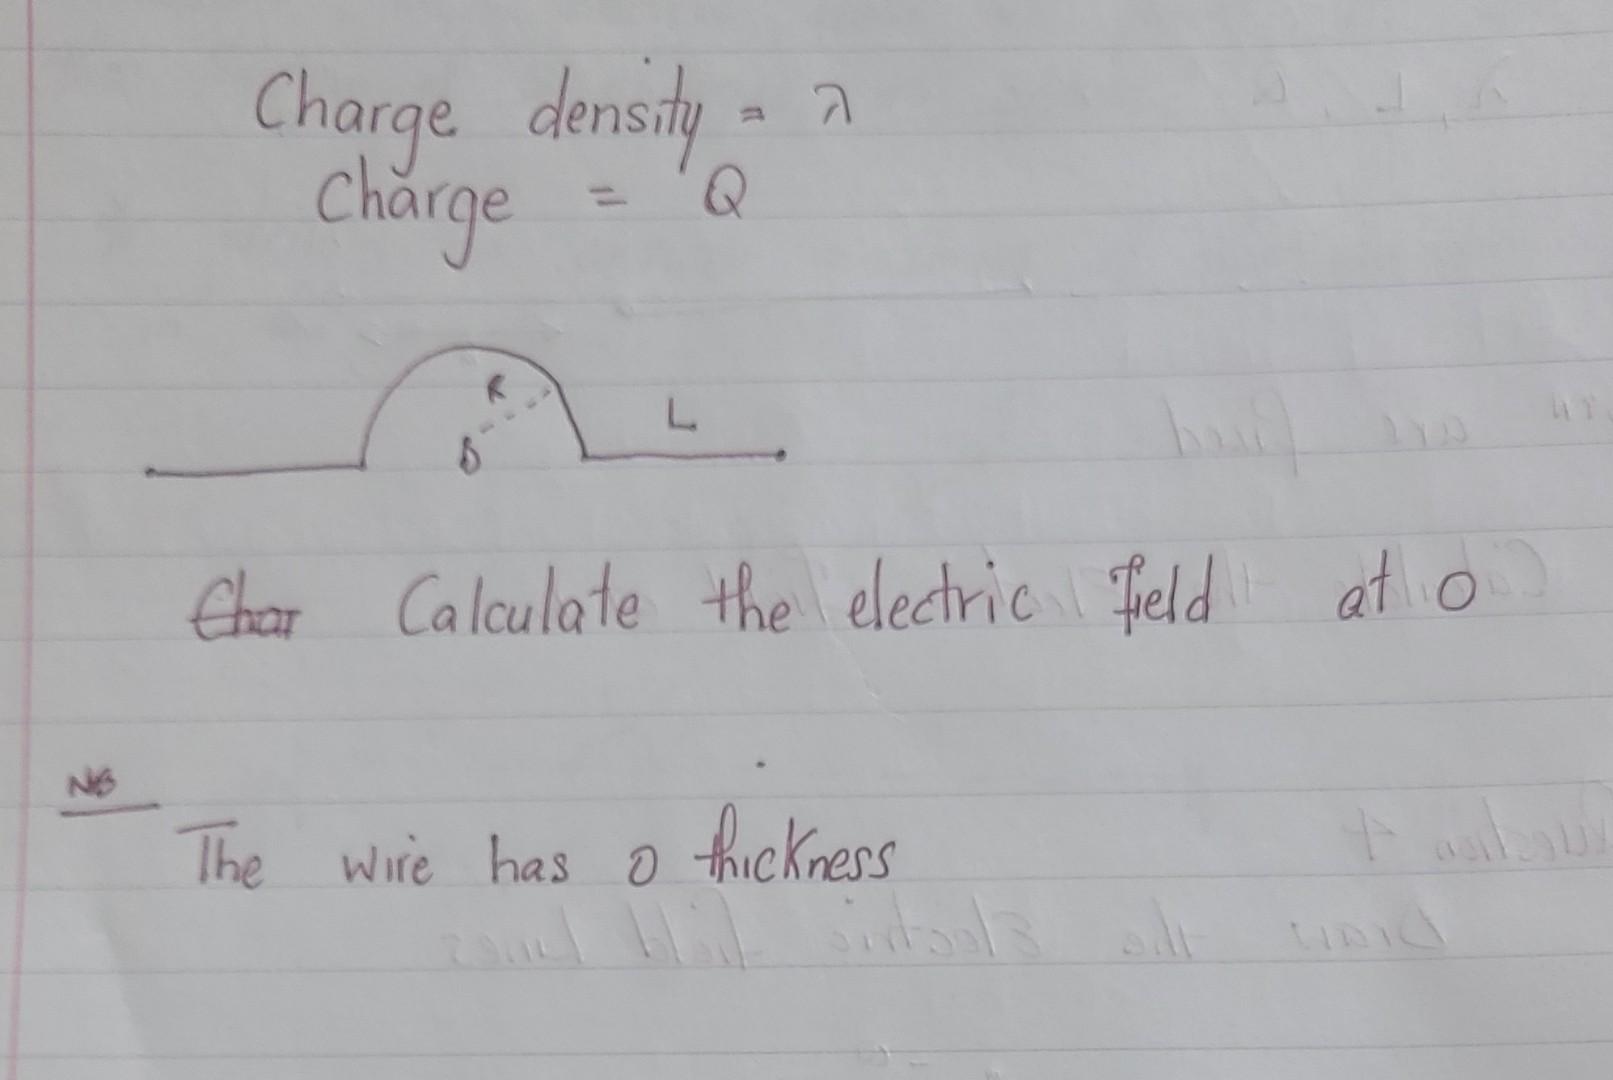 Charge density = λ
Charge = Q
R
L
O
Calculate the electric field at O
NB
The wire has 0 thickness